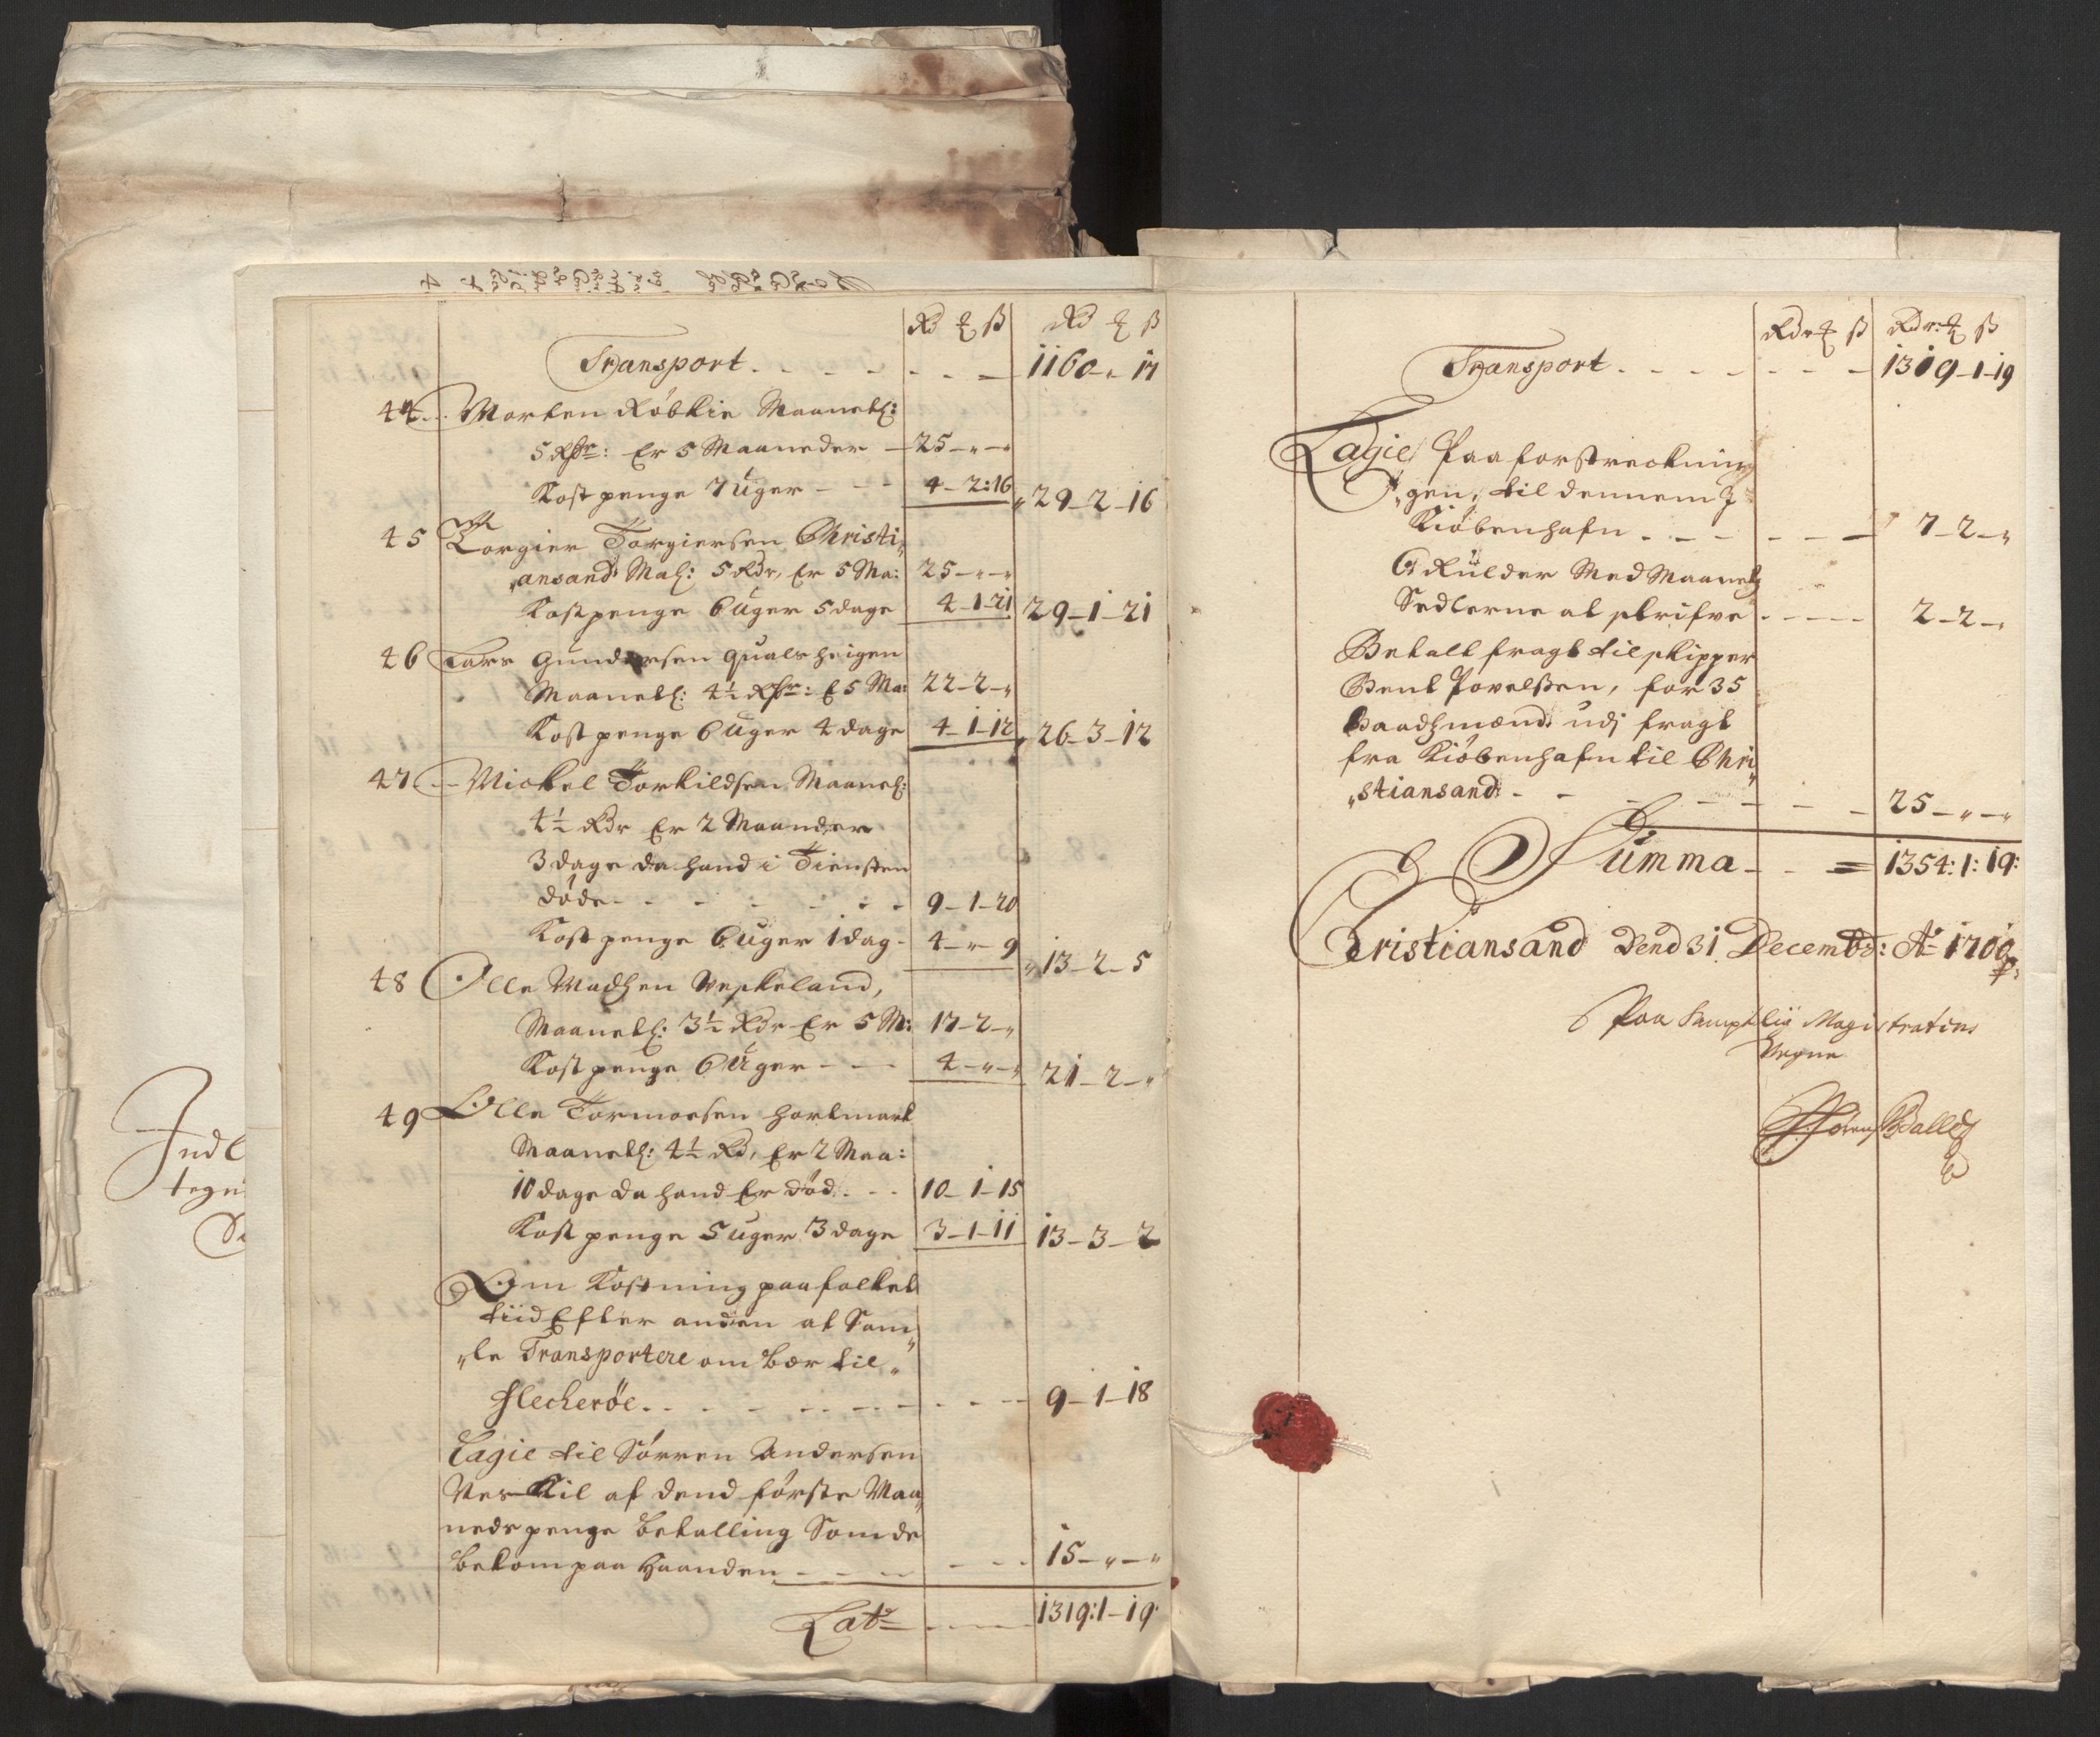 Rd ß Rd ß
Transport 1160 - " 17
44 Morten Röbkie Maanetl:
5 Rdr: Er 5 Maaneder 25 - " - "
Kostpenge 7 Uger 4 - 2: 16 29 - 2 - 16
45 Torgier Torgiersen Christi„
„ansand Mal: 5 Rdr, Er 5 Ma: 25 - " - "
Kostpenge 6 Uger 5 dage 4 - 1 - 21 29 - 1 - 21
46 Lars Gundersen Qualsheigen
Maanetl: 4½ Rdr: E 5 Ma: 22 - 2 - "
Kostpenge 6 Uger 4 dage 4 - 1 - 12 26 - 3 - 12
47 Mickel Torkildsen Maanetl:
4½ Rdr Er 2 Maander
3 dage da hand i Tiensten
döde 9 - 1 - 20
Kostpenge 6 Uger 1 dag 4 - " - 9 13 - 2 - 5
48 Olle Madsen Veskeland,
Maanetl: 3½ Rdr Er 5 M: 17 - 2 - "
Kostpenge 6 Uger 4 - " - " 21 - 2 - "
49 Olle Tormoesen Hortmark
Maanetl: 4½ Rd, Er 2 Maa:
10 dage da hand Er död 10 - 1 - 15
Kostpenge 5 uger 3 dage 3 - 1 - 11 13 - 3 - 2
Om Kostning paa folket
tiid Efter anden at Sam„
„le Transportere om bor til
flecheröe 9 - 1 - 18
Lagie til Sörren Andersen
Vestkil af dend förste Maa„
neds penge betalling Som de
bekom paa Haanden 15 - " - "
Lats 1319: 1 - 19
Rdr ß Rdr: ß
Transport 1319 - 1 - 19
Lagie Paa forstreckning
„gen, til dennem J
Kiöbenhafn 7 - 2 - "
6 Rulder Med Maanetz
Sedlerne at skrifve 2 - 2 - "
Betalt fragt til skipper
Bent Povelsen, for 35
Baadsmænd udj fragt
fra Kiöbenhafn til Chri„
„stiansand 25 - " - "
Summa 1354: 1: 19:
Christiansand Dend 31 Decembr: Ao 1700
Paa Samptlig Magistratens
Vegne
Sörens Balles
Indl
tegn